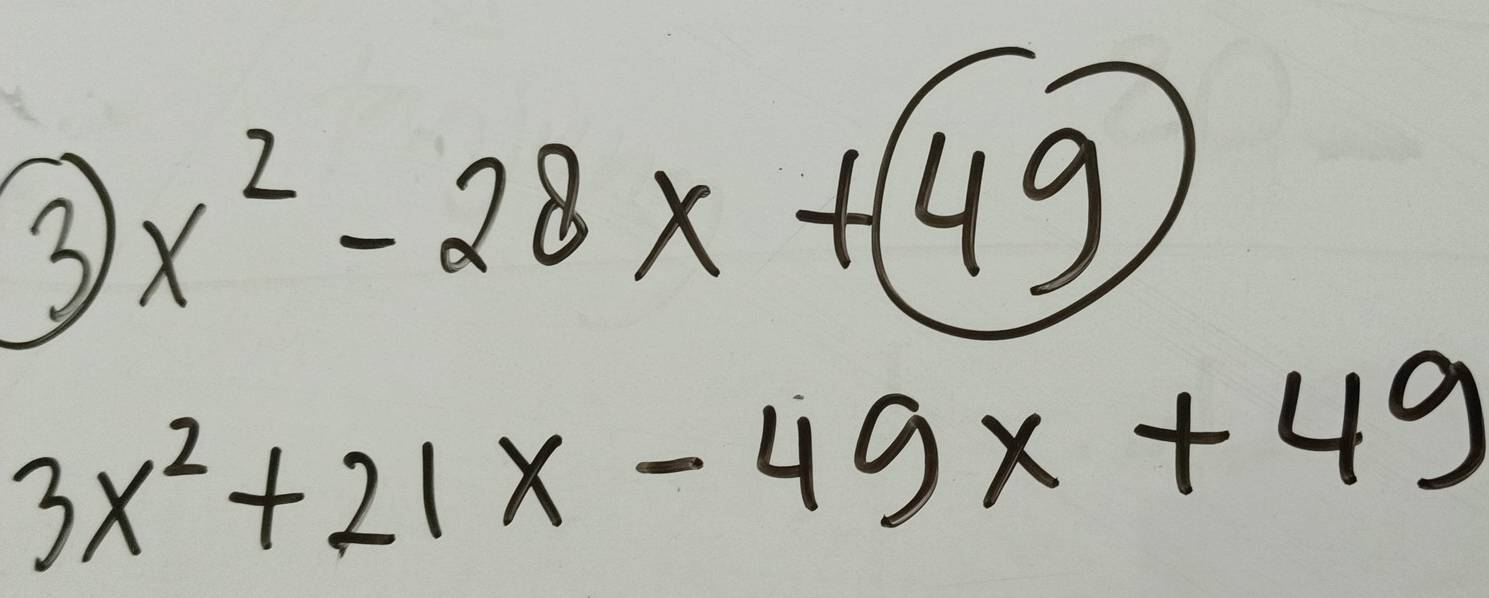 3x² - 28x + 49
3x² + 21x - 49x + 49